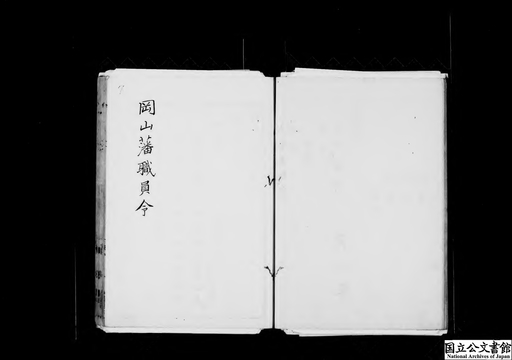 岡山藩職員令
国立公文書館
National Archives of Japan